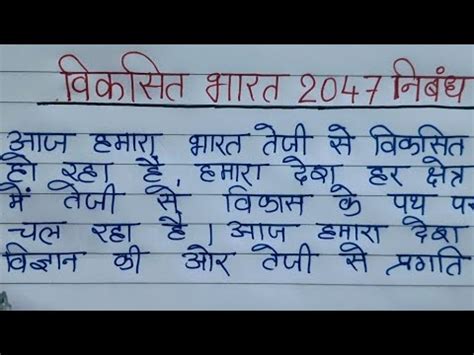 विकसित भारत 2047 निबंध
आज हमारा भारत तेजी से विकसित
हो रहा है, हमारा देश हर क्षेत्र
में तेजी से विकास के पथ पर
चल रहा है। आज हमारा देश
विज्ञान की ओर तेजी से प्रगति